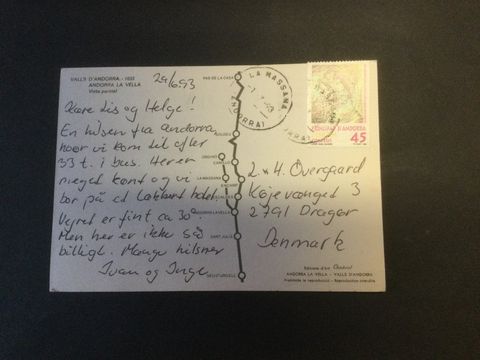 VALLS D'ANDORRA. - 1033
ANDORRA LA VELLA
Vista parcial
29/6.93
Kære Lis og Helge!
En hilsen fra Andorra
hvor vi kom til efter
33 t. i bus. Her er
meget kønt og vi
bor på et hotel
Vejret er fint ca 30°.
Men her er ikke så
billigt. Mange hilsner
Ivan og Inge
PAS DE LA CASA
CANILLO
LA MASSANA
ENCAMP
ANDORRA LA VELLA
SANT JULIÀ
SEU D'URGELL
LA MASSANA
ANDORRA
PRINCIPAT D'ANDORRA
CORREOS
45
L. & H. Overgaard
Køjevænget 3
2791 Dragør
Denmark
Editions d'Art
ANDORRA LA VELLA - VALLS D'ANDORRA
Prohibida la reproducció - Reproduction interdite